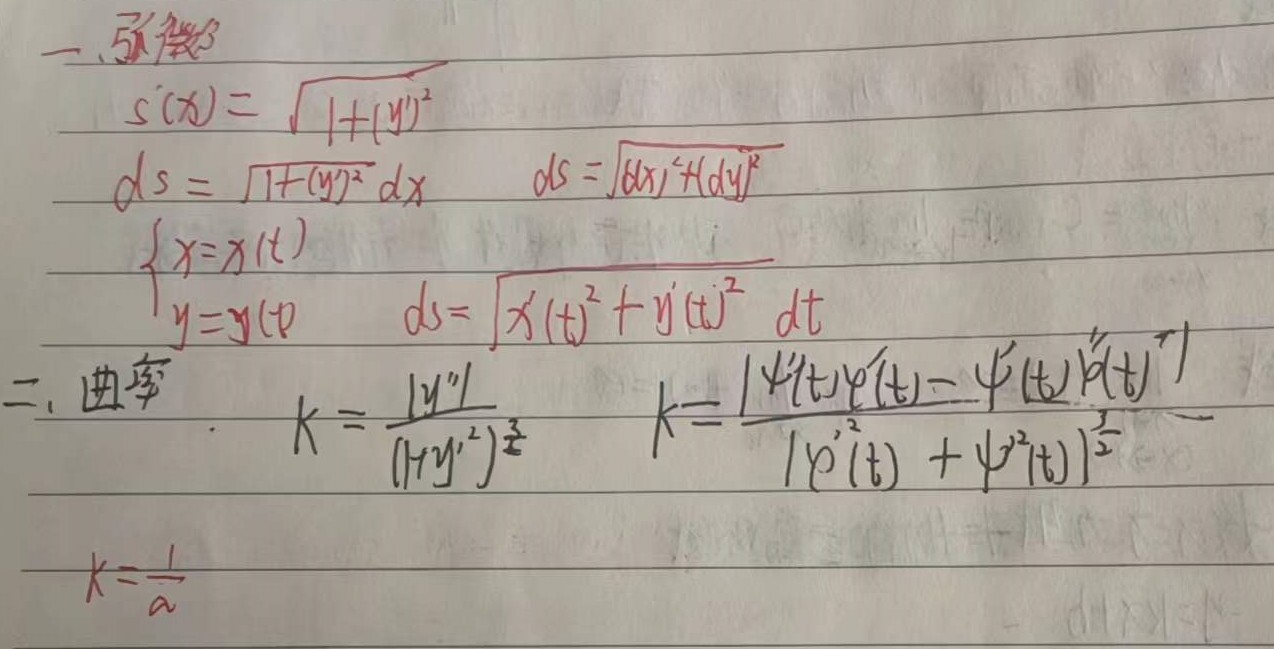 一、弧微分
s'(x) = √(1+(y')²)
ds = √(1+(y')²) dx ds = √((dx)²+(dy)²)
{ x = x(t)
y = y(t) ds = √(x'(t)² + y'(t)²) dt
二、曲率 K = |y''| / (1+y'²)^(3/2) K = |ψ''(t)φ'(t) − ψ'(t)φ''(t)| / |φ'²(t) + ψ'²(t)|^(3/2)
K = 1/a